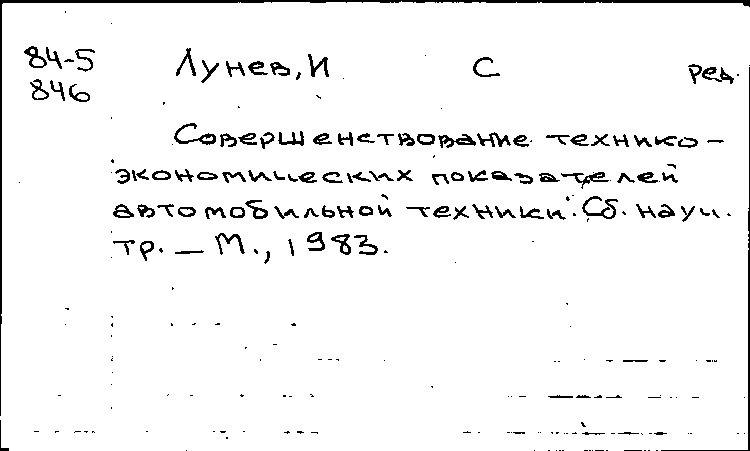 84-5 Лунев, И С ред.
846
Совершенствование технико-
экономических показателей
автомобильной техники: Сб. науч.
тр. — М., 1983.